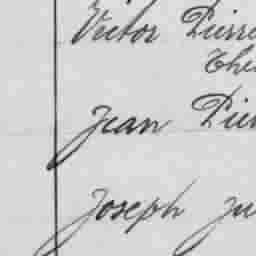 Victor Pierre
The
Jean Pier
Joseph Ju